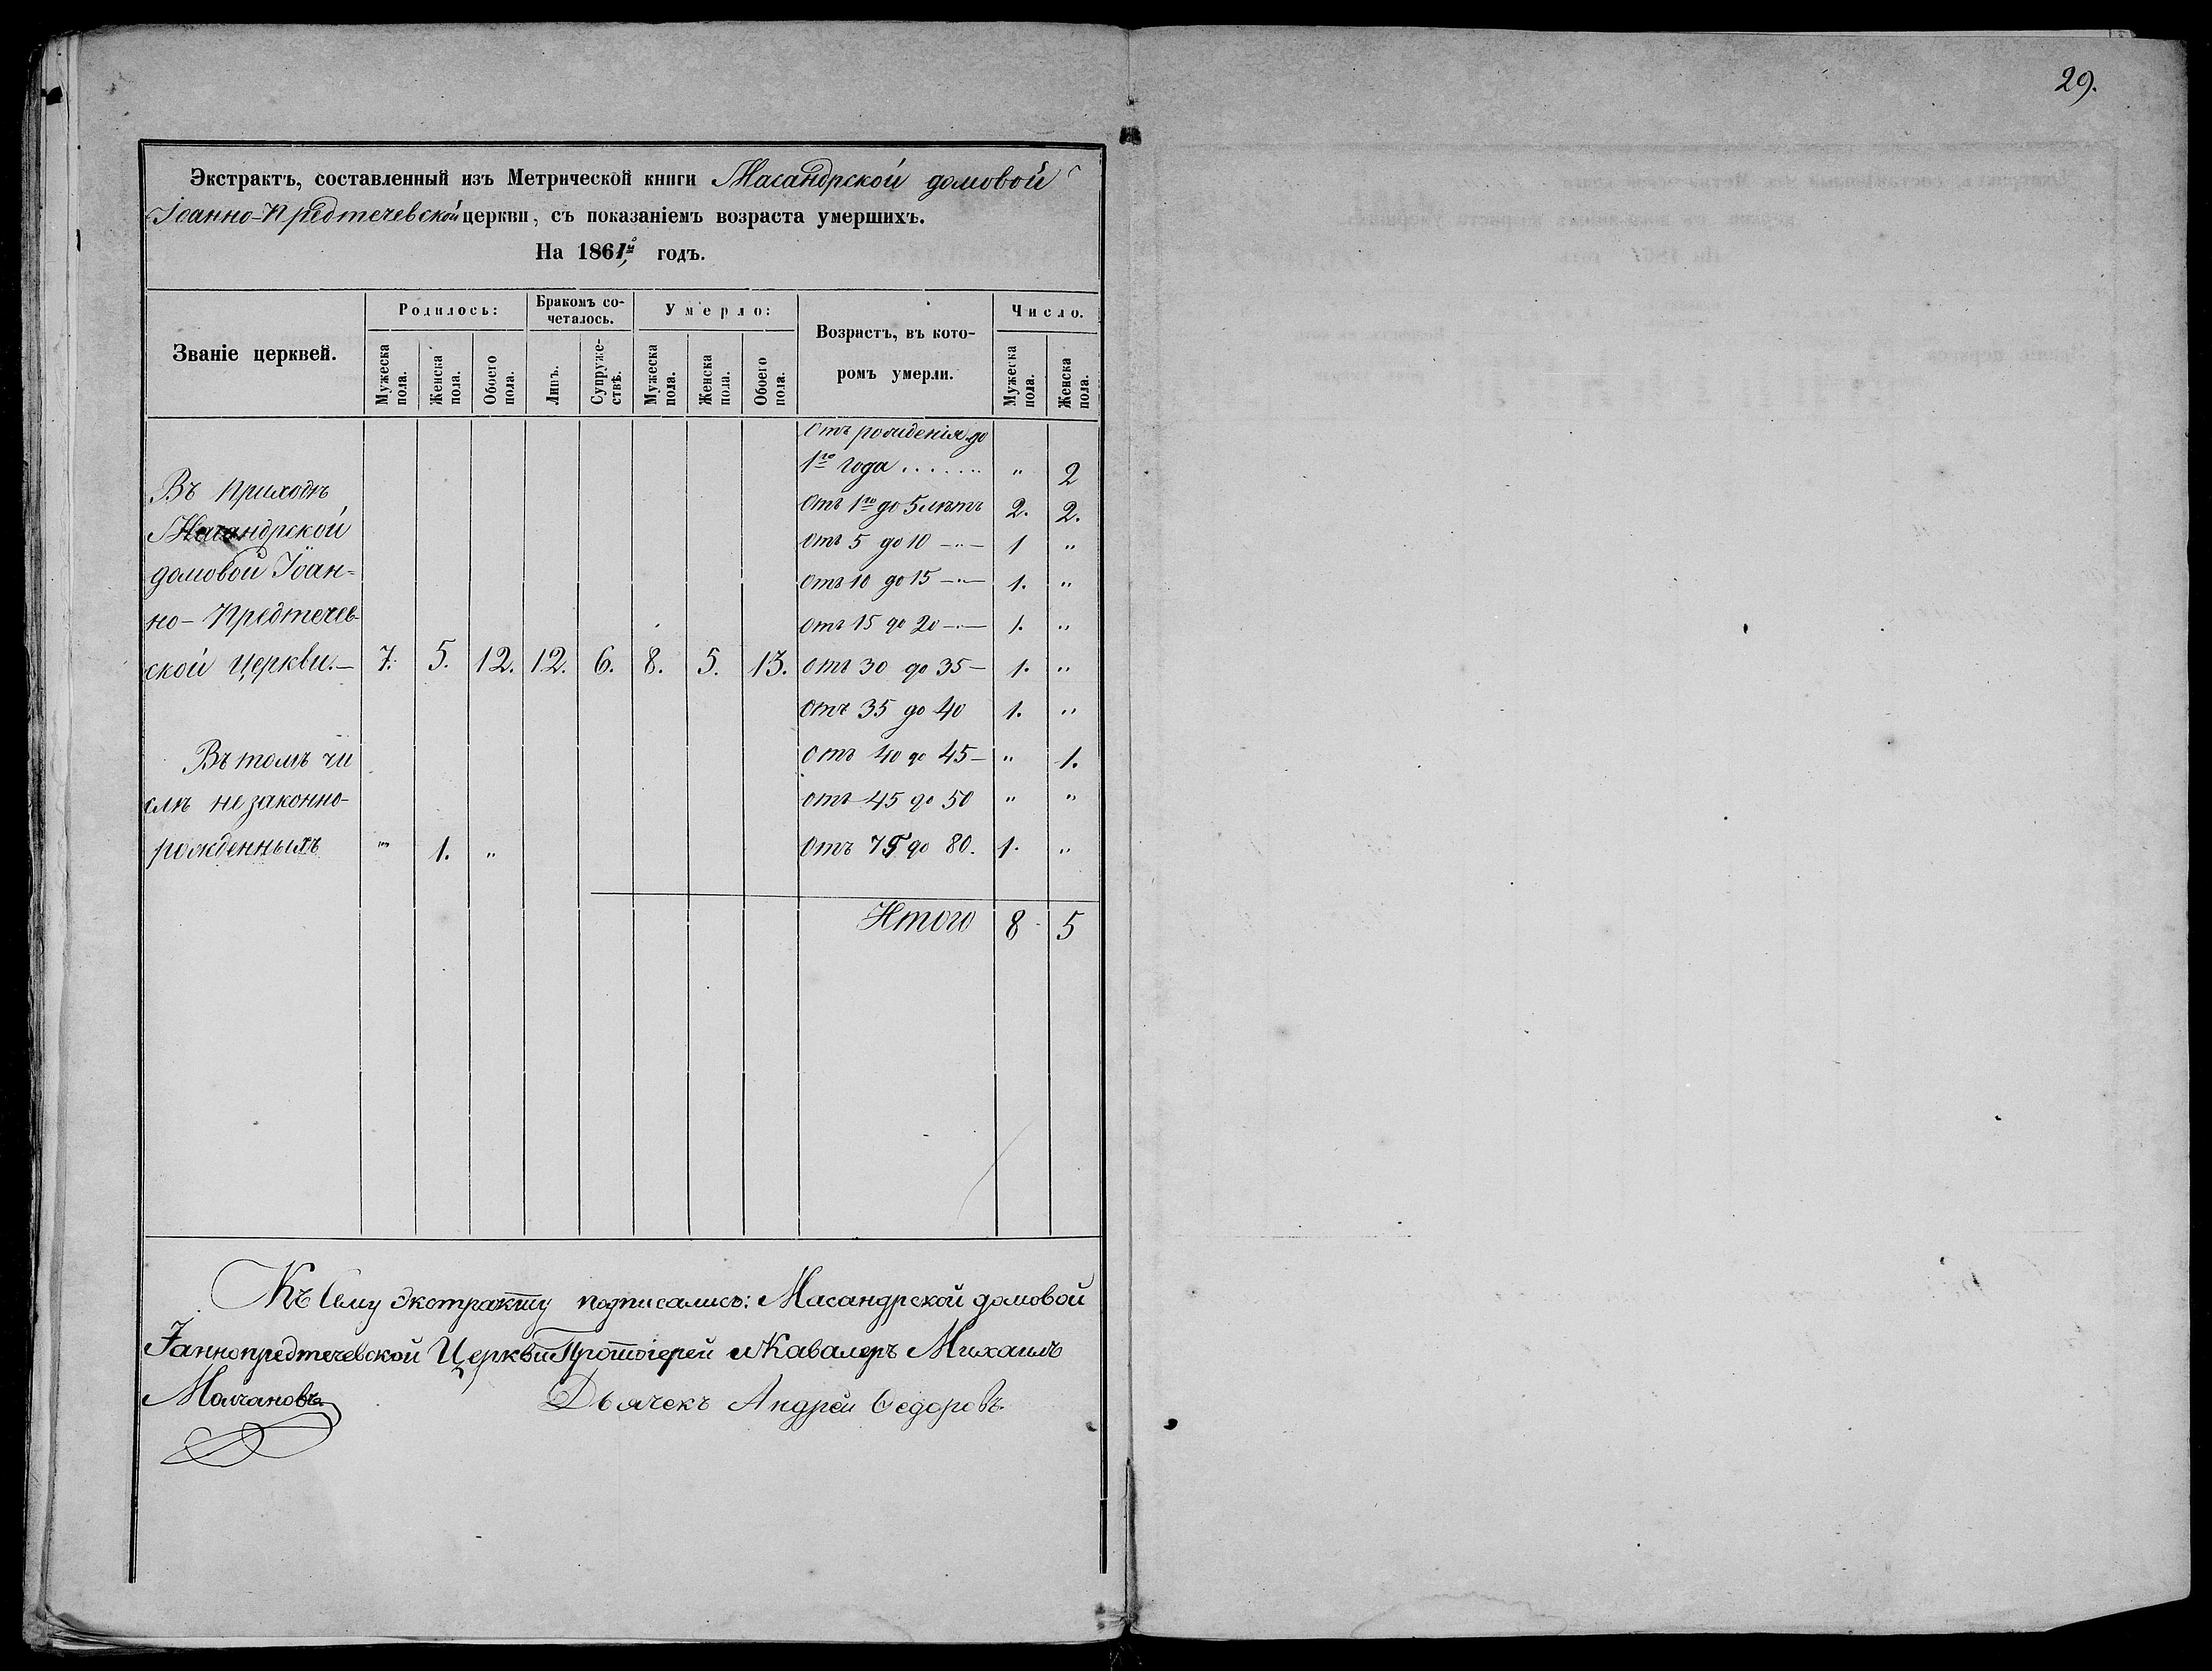 29.
Экстрактъ, составленный изъ Метрической книги Масандрской домовой
Іоанно-Предтечевской церкви, съ показаніемъ возраста умершихъ.
На 1861й годъ.
Званіе церквей.
Родилось:
Бракомъ со-
четалось.
Умерло:
Возрастъ, въ кото-
ромъ умерли.
Число.
Мужеска пола.
Женска пола.
Обоего пола.
Лицъ.
Супруже-
ствъ.
Мужеска пола.
Женска пола.
Обоего пола.
Мужеска пола.
Женска пола.
Отъ рожденія до
1го года . . . . . . . " 2
Въ Приходѣ
Отъ 1го до 5 лѣтъ 2. 2.
Масандрской
Отъ 5 до 10 —"— 1 "
домовой Іоан-
Отъ 10 до 15 —"— 1. "
но-Предтечев-
отъ 15 до 20 —"— 1. "
ской Церкви.— 7. 5. 12. 12. 6. 8. 5. 13. отъ 30 до 35— 1. "
Отъ 35 до 40 1. "
Въ томъ чи
Отъ 40 до 45— " 1.
слѣ незаконно-
отъ 45 до 50 " "
рожденныхъ " 1. " Отъ 75 до 80. 1. "
Итого 8 5
Къ Сему экстракту подписались: Масандрской домовой
Іаннопредтечевской Церкви Протоіерей и Кавалеръ Михаилъ
Молчановъ
Дьячекъ Андрей Ѳедоровъ.